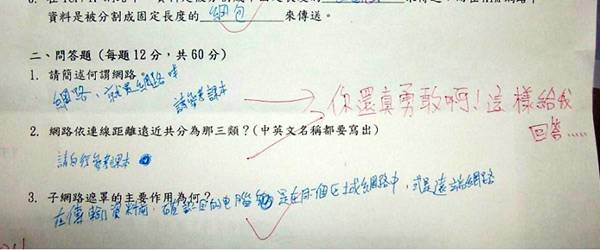 資料是被分割成固定長度的 網包 來傳送。
二、問答題（每題12分，共60分）
1. 請簡述何謂網路
網路，就是網路哇
請參考課本
你還真勇敢啊！這樣給我
回答.....
2. 網路依連線距離遠近共分為那三類？(中英文名稱都要寫出)
請自行參考課本
3. 子網路遮罩的主要作用為何？
在傳輸資料前，確認目的電腦 是在同個區域網路中，或是遠端網路